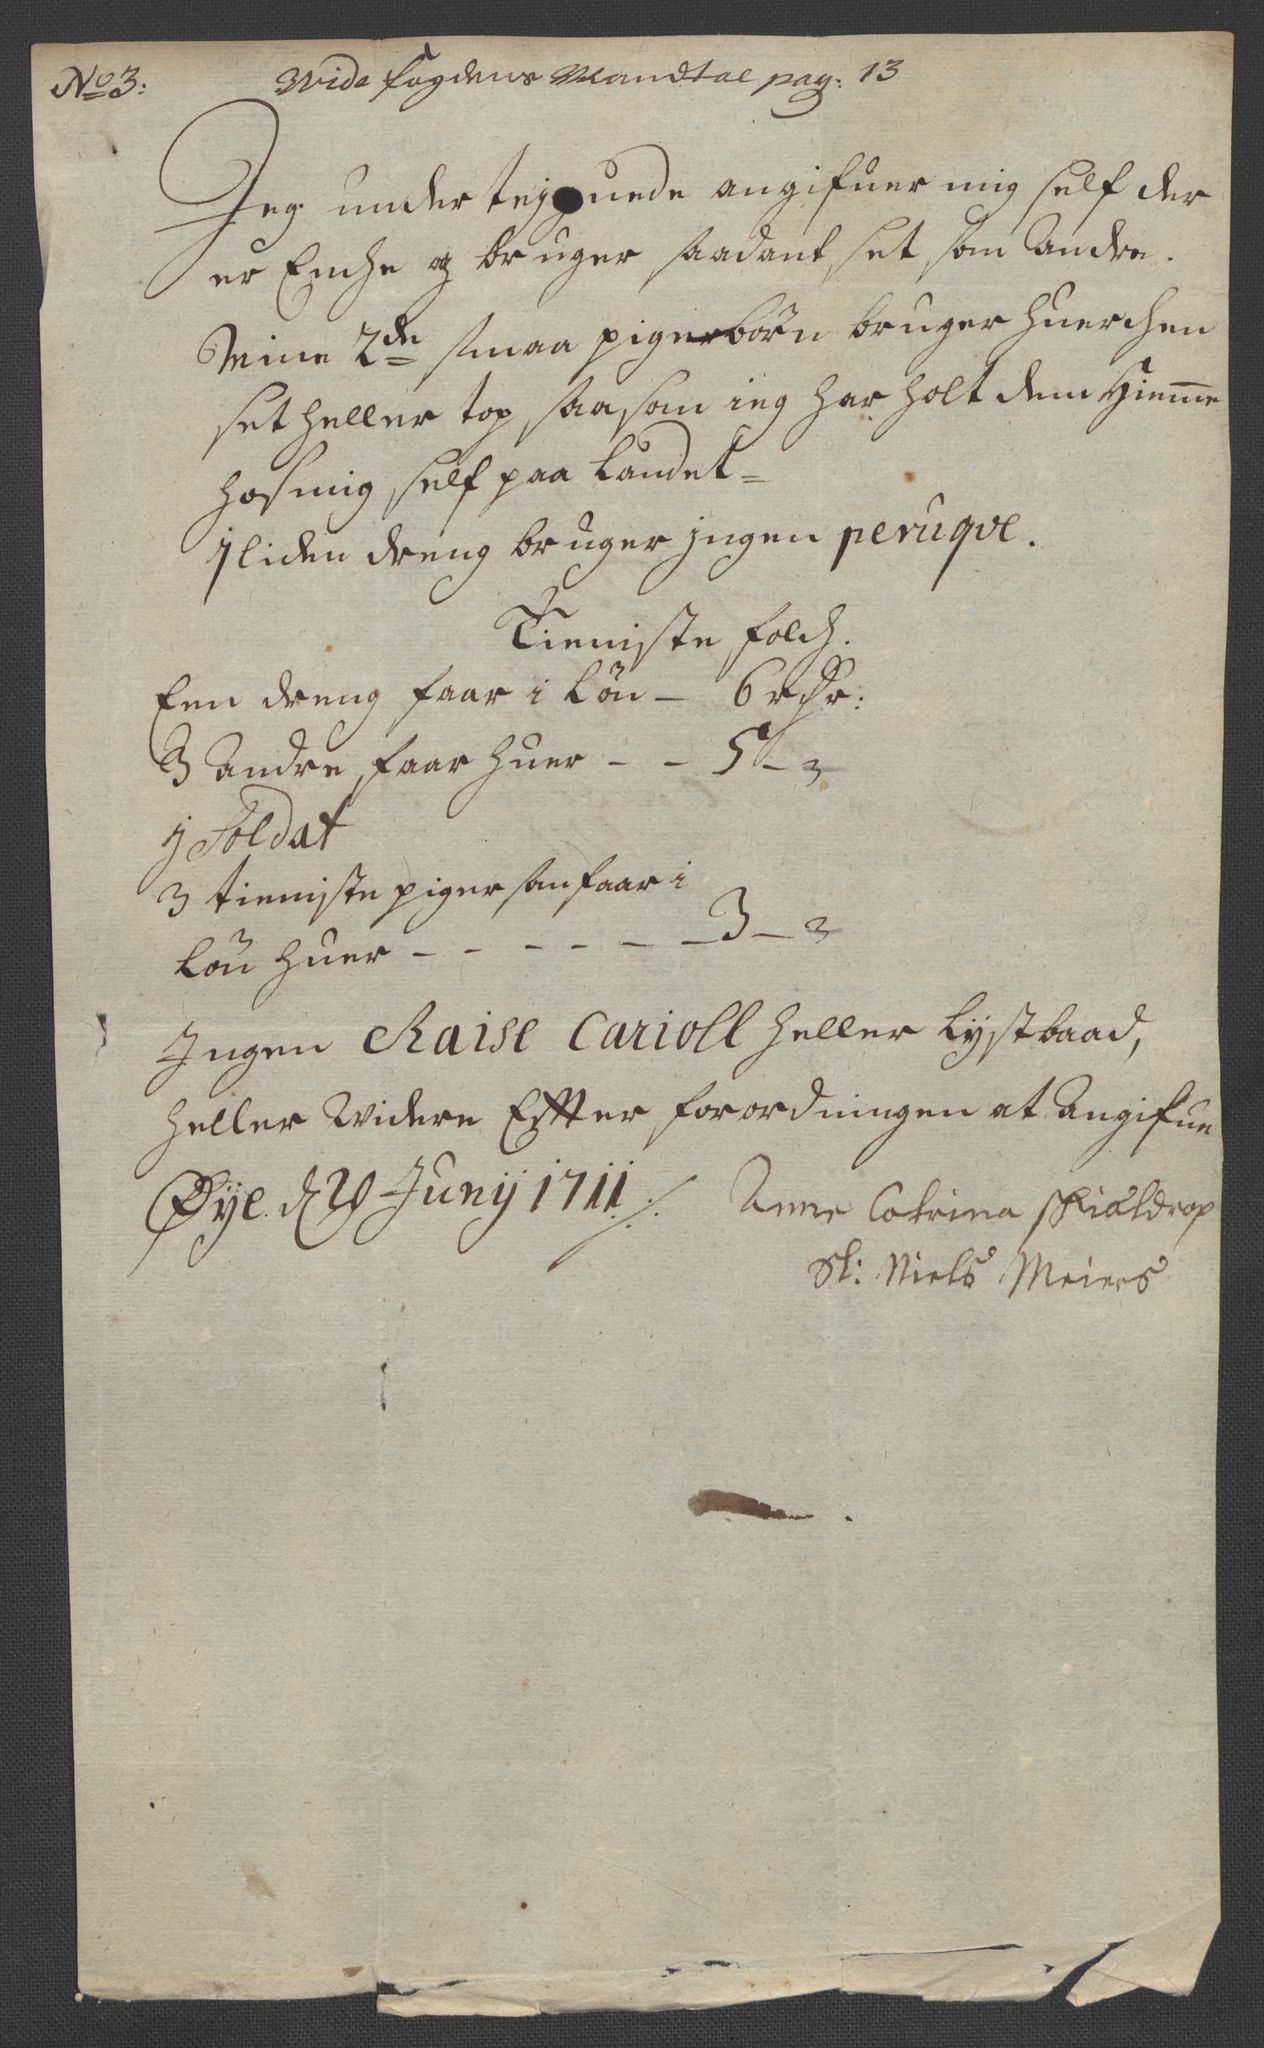 No 3: Wide fogdens Mandtal pag: 13
Jeg under tejgnede angifuer mig self der
er Enche og bruger saadant set som Andre.
Meine 2de smaa pigebörn bruger huerchen
set heller top, saasom ieg har holt dem Hieme
hos mig self paa Landet=
1 liden dreng bruger jngen peruqve.
Tieniste folch.
Een dreng faar i Lön – 6 rdr:
3 Andre faar huer – – 5 – 3
j Soldat
3 tieniste piger som faar i
Lön huer – – – – – – 3 – 3
Ingen Chaise Carioll heller Lystbaad,
heller Widere Efter forordningen at Angifue
Øye. d 29 Junij 1711 ./. Anne Catrina skieldrop
Sl: Niels Meiers